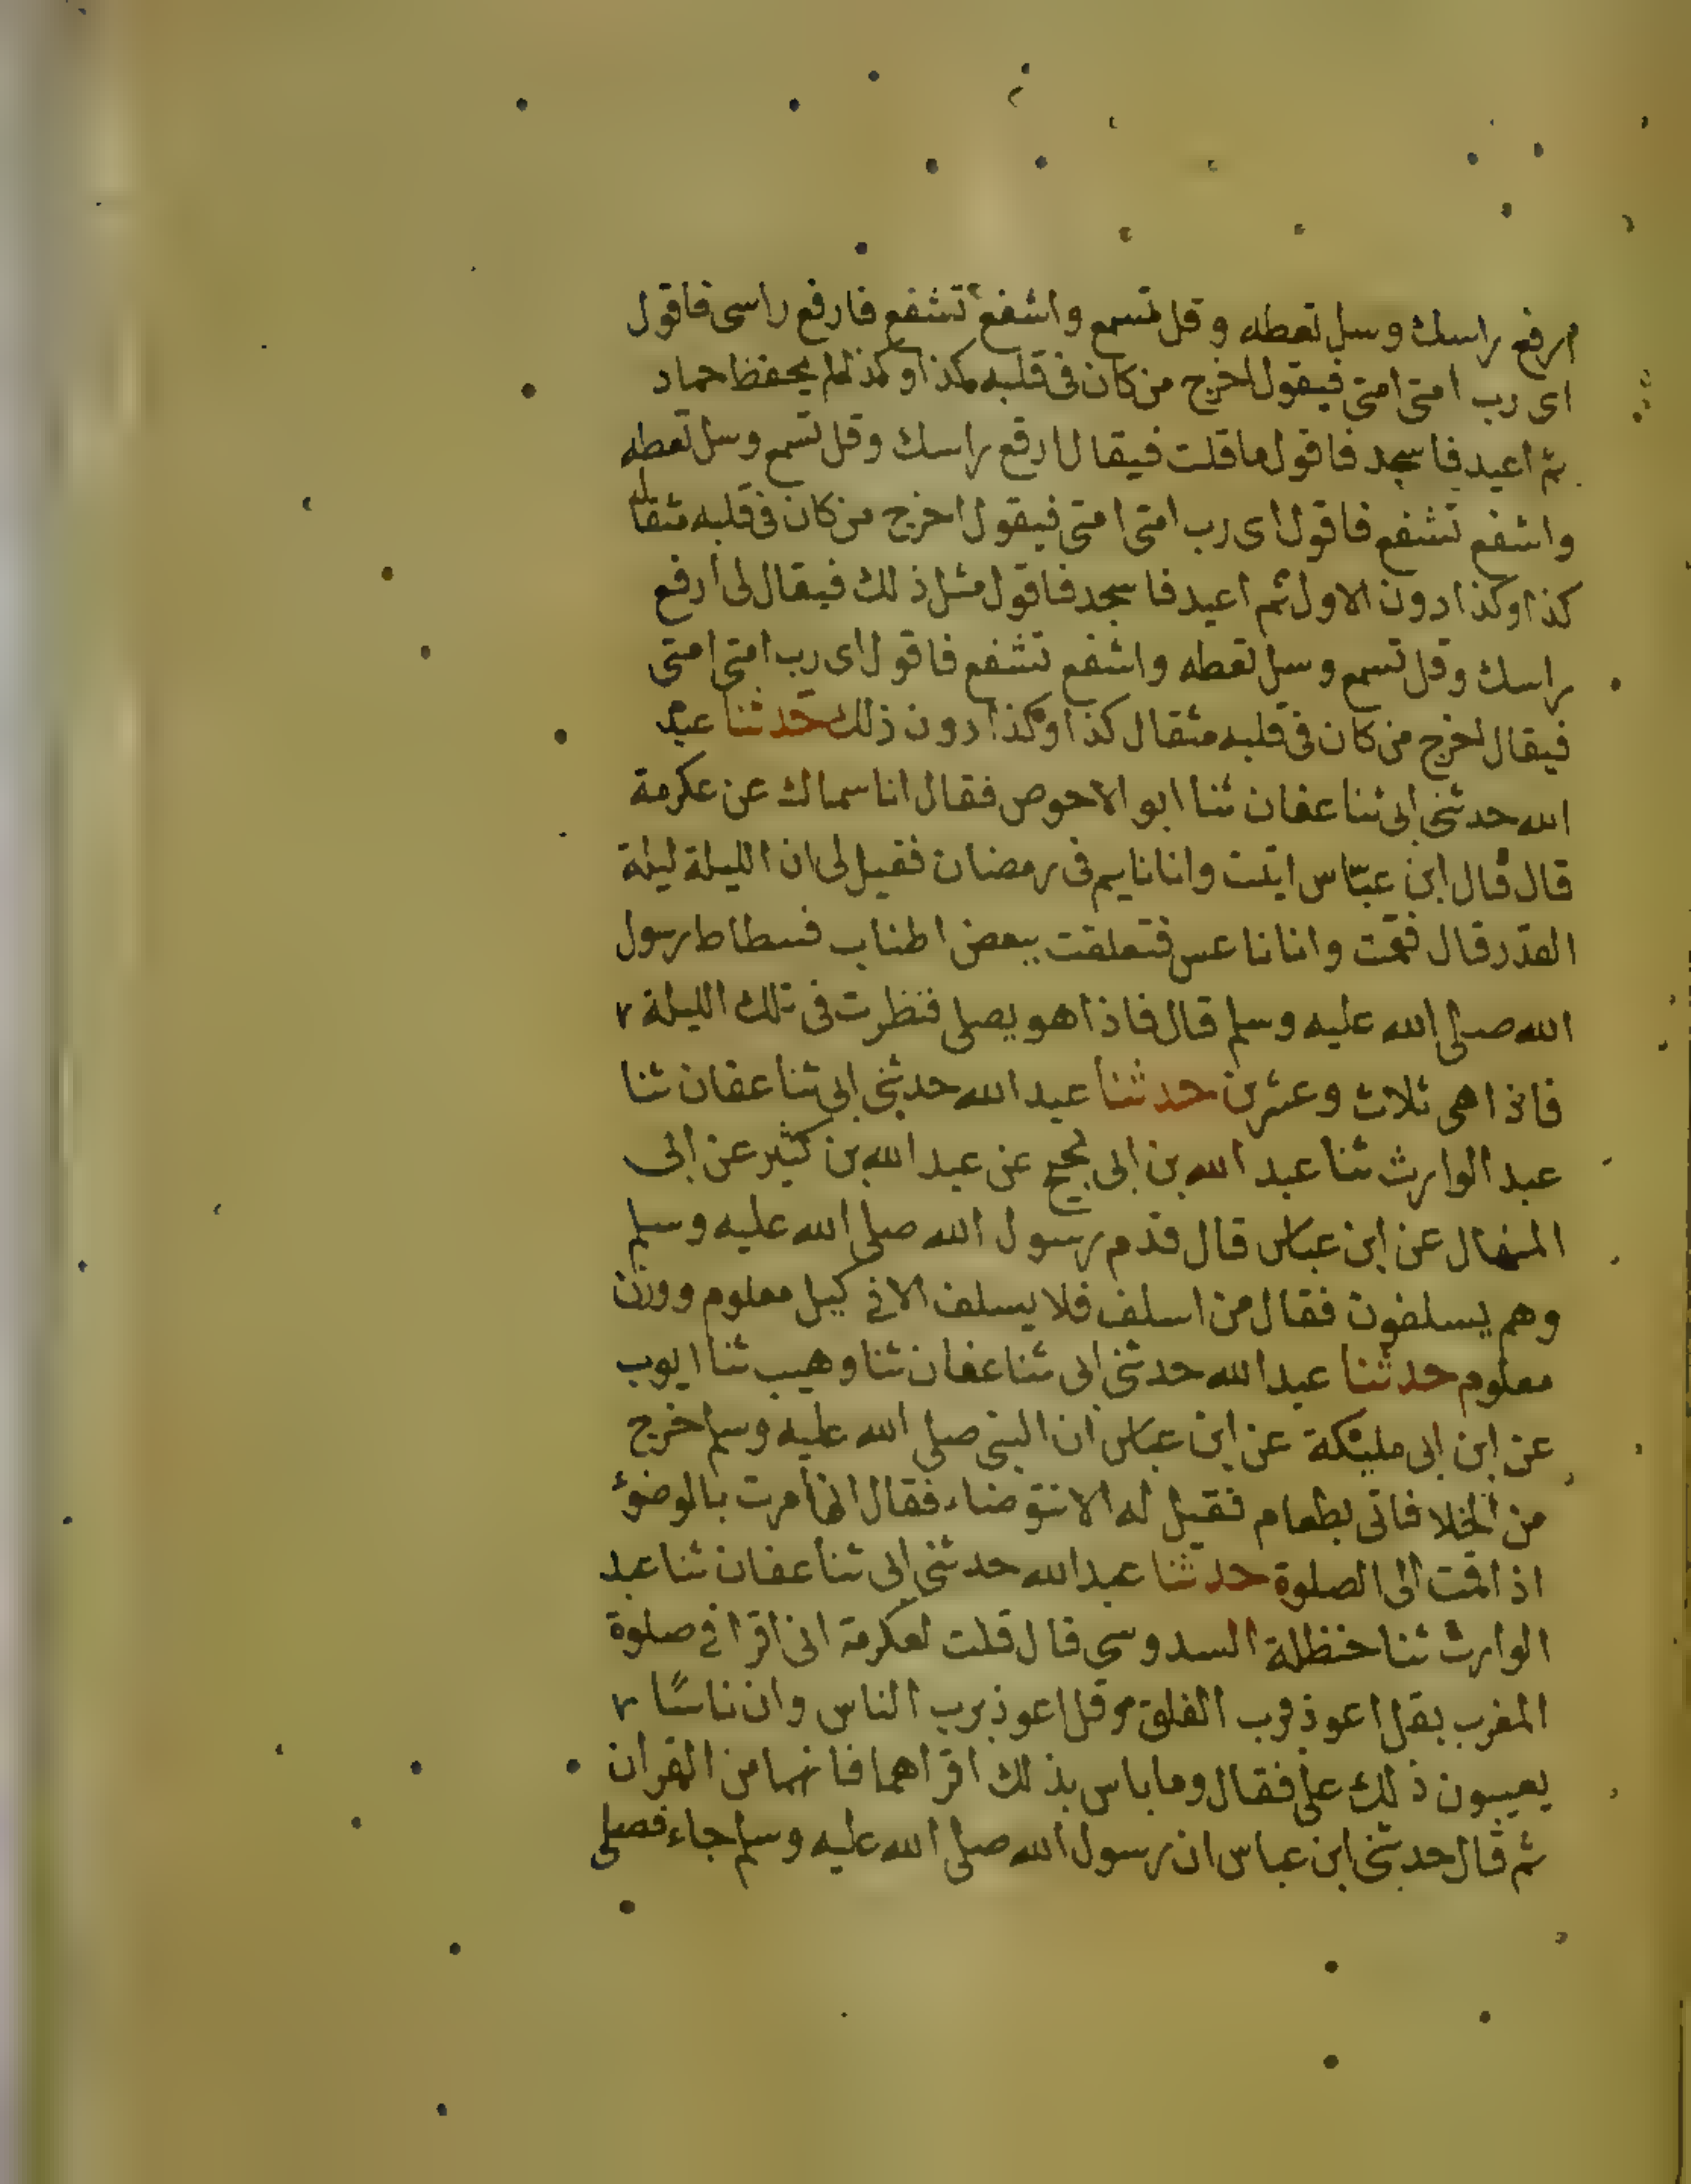 ارفع راسك وسل تعطه وقل تسمع واشفع تشفع فارفع راسى فاقول
اى رب امتى امتى فيقول اخرج من كان فى قلبه كذا وكذا لم يحفظ حماد
ثم اعيد فاسجد فاقول ما قلت فيقال ارفع راسك وقل تسمع وسل تعطه
واشفع تشفع فاقول اى رب امتى امتى فيقول اخرج من كان فى قلبه مثقال
كذا وكذا دون الاول ثم اعيد فاسجد فاقول مثل ذلك فيقال لى ارفع
راسك وقل تسمع وسل تعطه واشفع تشفع فاقول اى رب امتى امتى
فيقال اخرج من كان فى قلبه مثقال كذا وكذا دون ذلك حدثنا عبد
الله حدثنى ابى ثنا عفان ثنا ابو الاحوص فقال انا سماك عن عكرمة
قال قال ابن عباس اتيت وانا نايم فى رمضان فقيل لى ان الليلة ليلة
القدر قال فقمت وانا ناعس فتعلقت ببعض اطناب فسطاط رسول
الله صلى الله عليه وسلم قال فاذا هو يصلى فنظرت فى تلك الليلة
فاذا هى ثلاث وعشرين حدثنا عبد الله حدثنى ابى ثنا عفان ثنا
عبد الوارث ثنا عبد الله بن ابى نجيح عن عبد الله بن كثير عن ابى
المنهال عن ابن عباس قال قدم رسول الله صلى الله عليه وسلم
وهم يسلفون فقال من اسلف فلا يسلف الا فى كيل معلوم ووزن
معلوم حدثنا عبد الله حدثنى ابى ثنا عفان ثنا وهيب ثنا ايوب
عن ابن ابى مليكة عن ابن عباس ان النبى صلى الله عليه وسلم خرج
من الخلا فاتى بطعام فقيل له الا نتوضاء فقال انما امرت بالوضوء
اذا قمت الى الصلوة حدثنا عبد الله حدثنى ابى ثنا عفان ثنا عبد
الوارث ثنا حنظلة السدوسى قال قلت لعكرمة انى اقرا فى صلوة
المغرب بقل اعوذ برب الفلق وقل اعوذ برب الناس وان ناسًا
يعيبون ذلك على فقال وما باس بذلك اقراهما فانهما من القران
ثم قال حدثنى ابن عباس ان رسول الله صلى الله عليه وسلم جاء فصلى